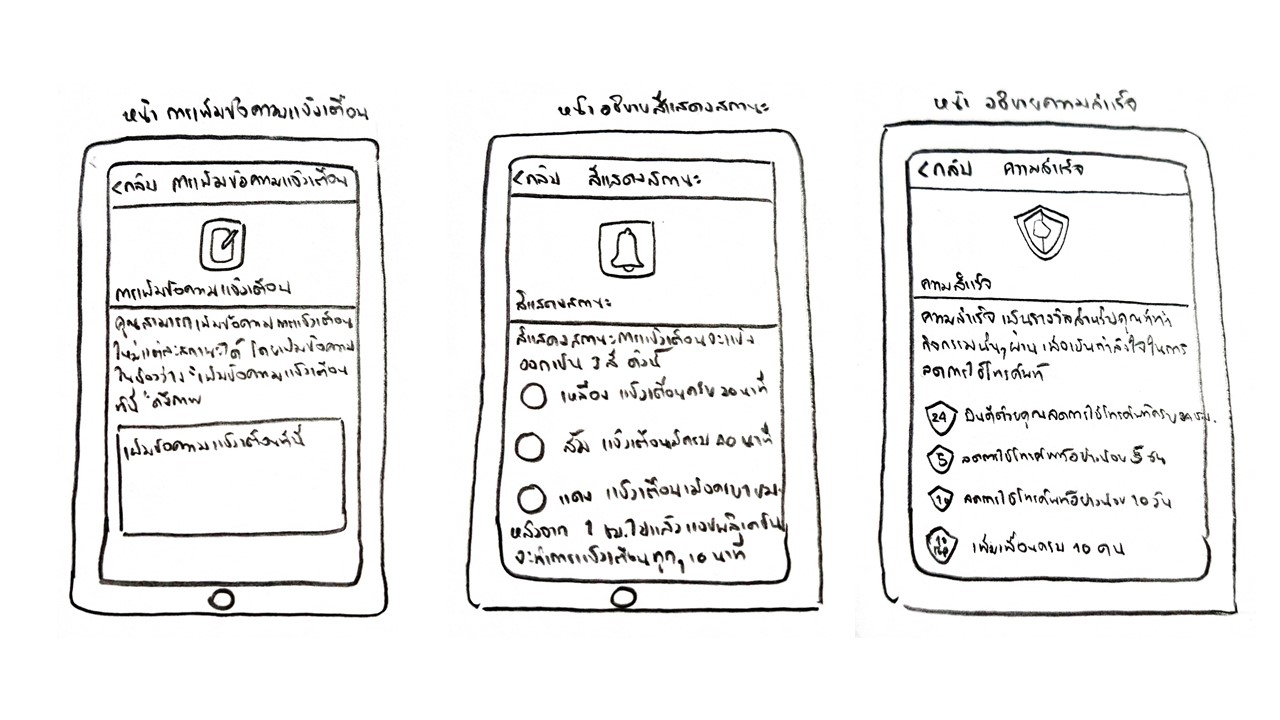 หน้า การเพิ่มข้อความแจ้งเตือน
<กลับ การเพิ่มข้อความแจ้งเตือน
การเพิ่มข้อความแจ้งเตือน
คุณสามารถเพิ่มข้อความการแจ้งเตือน
ใหม่แต่ละสถานะได้ โดยเพิ่มข้อความ
ในช่องว่าง "เพิ่มข้อความแจ้งเตือน
ที่นี่" ดังภาพ
เพิ่มข้อความแจ้งเตือนที่นี่
หน้า อธิบายสีแสดงสถานะ
<กลับ สีแสดงสถานะ
สีแสดงสถานะ
สีแสดงสถานะการแจ้งเตือนจะแบ่ง
ออกเป็น 3 สี ดังนี้
เหลือง แจ้งเตือนครบ 20 นาที
ส้ม แจ้งเตือนครบ 40 นาที
แดง แจ้งเตือนเมื่อครบ 1 ชม.
หลังจาก 1 ชม.ไปแล้ว แอปพลิเคชัน
จะทำการแจ้งเตือนทุกๆ 10 นาที
หน้า อธิบายความสำเร็จ
<กลับ ความสำเร็จ
ความสำเร็จ
ความสำเร็จ เป็นรางวัลสำหรับคุณที่ทำ
กิจกรรมนั้นๆ ผ่าน เพื่อเป็นกำลังใจในการ
ลดการใช้โทรศัพท์
24 ยินดีด้วยคุณลดการใช้โทรศัพท์ครบ 24 ชม.
5 ลดการใช้โทรศัพท์อย่างน้อย 5 วัน
10 ลดการใช้โทรศัพท์อย่างน้อย 10 วัน
10 เพิ่มเพื่อนครบ 10 คน